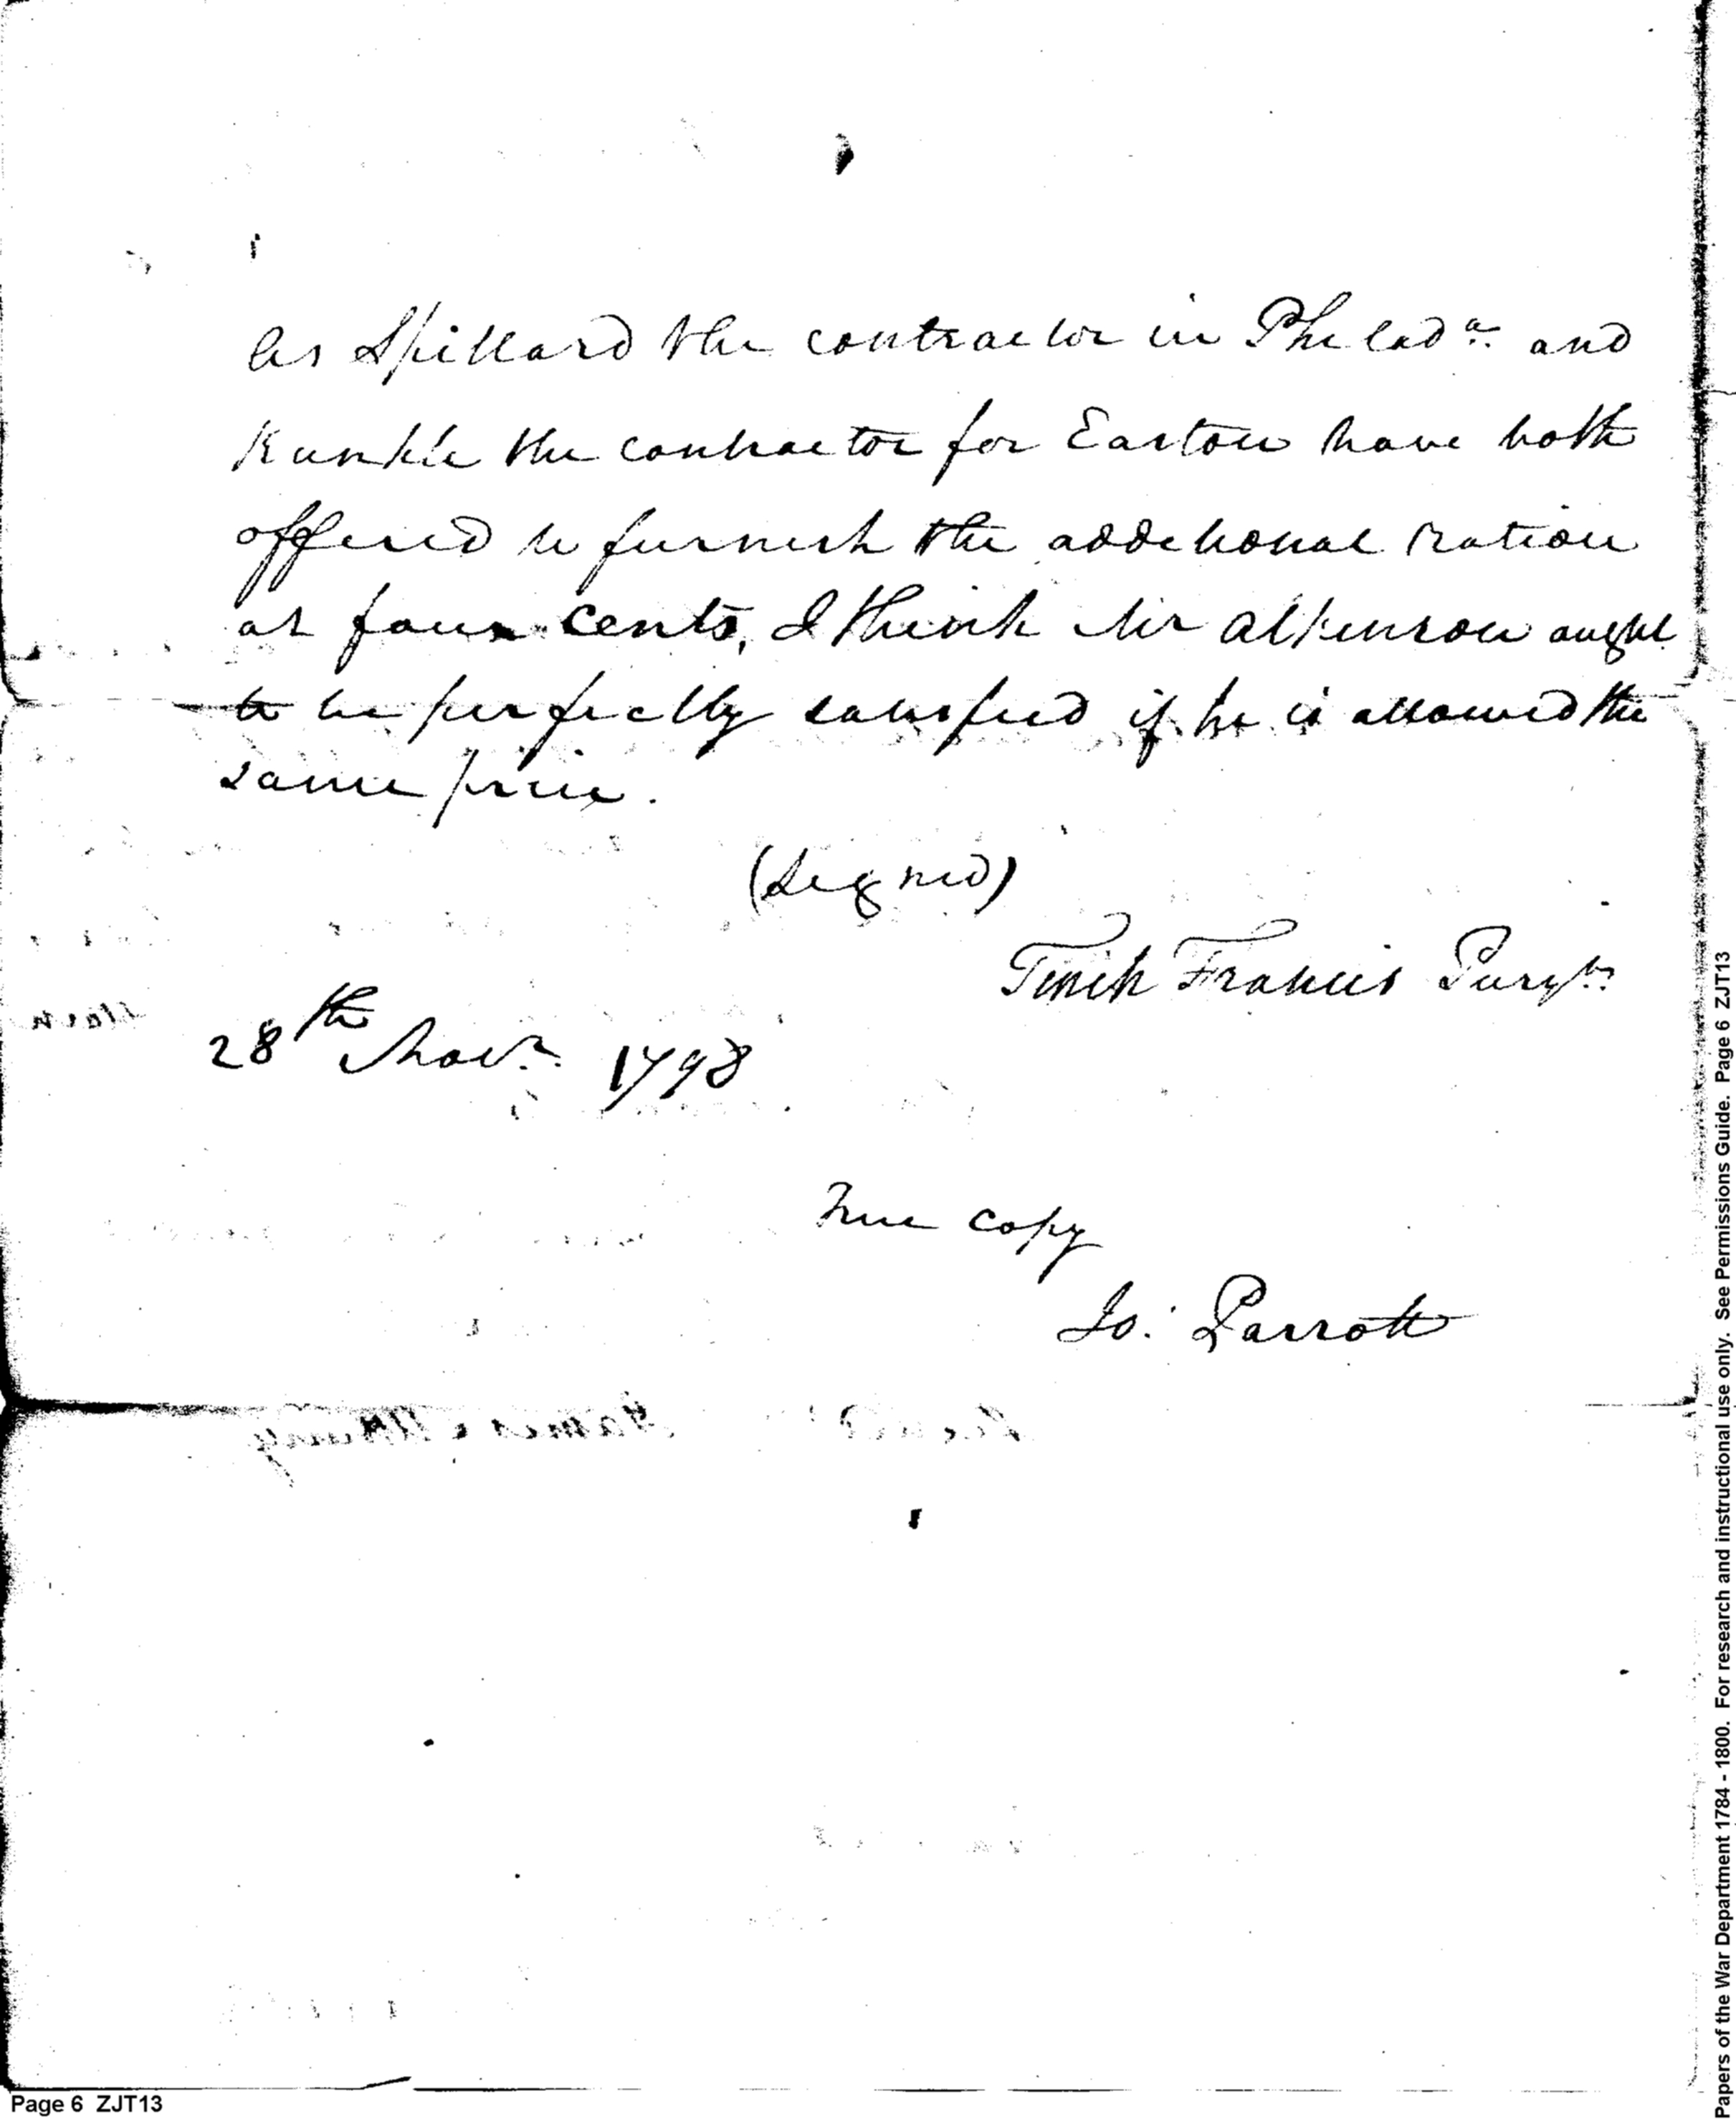 As Spillard the contractor in Philad.ª and
Kunkle the contractor for Easton have both
offered to furnish the additional ration
at four cents, I think Mr Atkinson aught
to be perfectly satisfied if he is allowed the
same price.
(Signed)
Tench Francis Purvr.
28th Novr. 1798
True copy
Jo: Parrott
Page 6 ZJT13
Papers of the War Department 1784 - 1800. For research and instructional use only. See Permissions Guide. Page 6 ZJT13